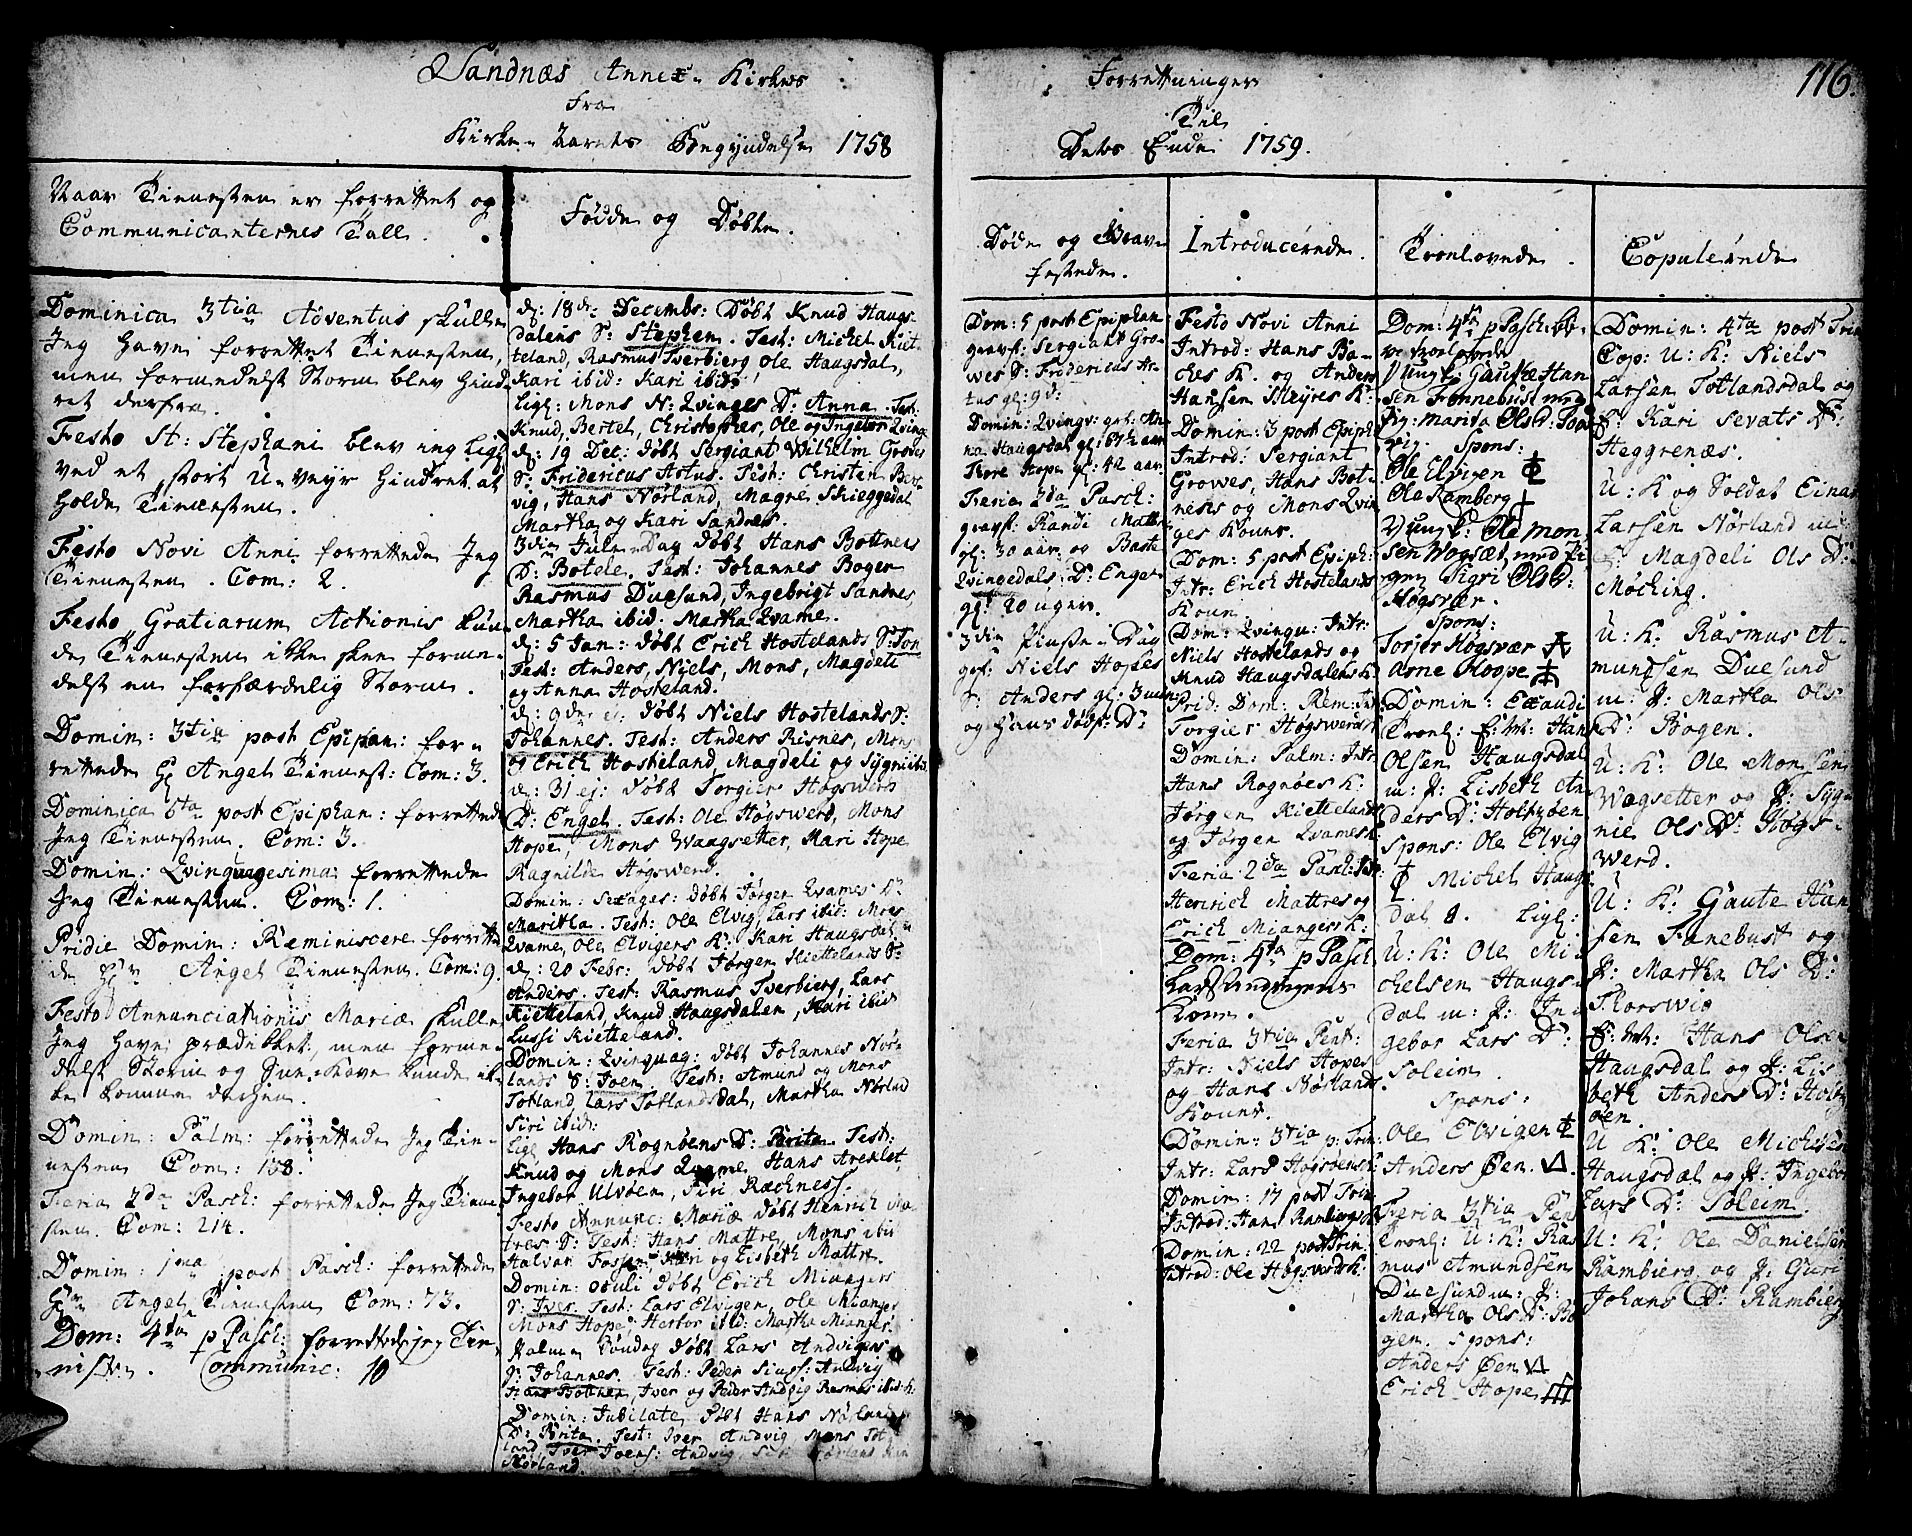 Sandnæs Annex- Kirkes
fra
Kirke- Aarets Begyndelse 1758
Naar Tienesten er forrettet og
Communicanternes Tall.
Dominica 3tia Adventus skulle
Jeg have forrettet Tienesten,
men formedelst Storm blev hind-
ret derfra.
Festo St: Stephani blev ing lig
ved et stort U-veyr hindret at
holde Tienesten.
Festo Novi Anni forrettede Jeg
Tienesten. Com: 2.
Festo Gratiarum Actionis kun-
de Tienesten ikke skee forme-
delst en forfærdelig Storm.
Domin: 3tia post Epiphan: for-
rettede Hr Angel Tienest: Com: 3.
Dominica 5ta post Epiphan: forrettede
Jeg Tienesten. Com: 3.
Domin: Qvinquagesima forrettede
Jeg Tienesten. Com: 1.
Pridie Domin: Reminiscere forrette-
de Hr Angel Tienesten. Com: 9.
Festo Annunciationis Mariæ skulle
Jeg have prædikket, men forme-
delst Storm og Snee-Kave kunde ik-
ke komme derhen.
Domin: Palm: forrettede Jeg Tie-
nesten Com: 158.
Feria 2da Pasch: forrettede Jeg Tiene-
sten. Com: 214.
Domin: 1ma post Pasch: forrettede
Hr Angel Tienesten Com: 73.
Dom: 4ta p Pasch: forrettede jeg Tie-
nisten. Communic: 10
Fødde og Døbte.
d: 18de Decembr: Døbt Knud Haugs-
dalens S: Stephen. Test: Michel Kiet-
teland, Rasmus Tverbierg, Ole Haugsdal,
Kari ibid: Kari ibid:
Ligl: Mons N: Qvinges D: Anna. Test:
Knud, Bertel, Christopher, Ole og Ingebor Qvinge
d: 19 Dec: døbt Sergiant Wilhelm Growes
S: Fridericus Astus. Test: Christen
vig, Hans Nørland, Magne Skieggedal
Martha og Kari Sandnes.
3die Jule-Dag døbt Hans Botners
D: Botele. Test: Johannes Boger
Rasmus Duesund, Ingebrigt Sandnes,
Martha ibid: Martha Qvame.
d: 5 Jan: døbt Erich Hostelands S: Jon
Test: Anders, Niels, Mons, Magdeli
og Anna Hosteland.
d: 9de ej: døbt Niels Hostelands S:
Johannes. Test: Anders Risnes, Mons
og Erich Hosteland, Magdeli og Sygni ibid
d: 31 ej: døbt Torgier Høgswers
D: Engel. Test: Ole Høgswerd, Mons
Hope, Mons Waagsetter, Kari Hope
Ragnilde Høgswerd.
Domin: Sexages: døbt Jørgen Qvames D:
Maritha. Test: Ole Elvig, Lars ibid: Mons
Qvame, Ole Elvigers K: Kari Haugsdal
d: 20 Febr: døbt Jørgen Kiettelands S:
Anders. Test: Rasmus Tverbierg, Lars
Kietteland, Knud Haugsdalen, Kari ibid
Lussi Kietteland.
Domin: Qvinquag: døbt Johannes Nør-
lands S: Joen. Test: Amund og Mons
Totland Lars Totlandsdal, Martha Nørland
Siri ibid:
Lig: Hans Rognøens D: Parita. Test:
Knud og Mons Qvame, Hans Areklet,
Ingebor Ulvøen, Siri Rachness.
Festo Annunc: Mariæ døbt Henrich Ma-
tres S: Test: Hans Mattre, Mons ibid
Halvar Fossen, Kari og Lisbeth Mattre.
Domin: Oculi døbt Erich Miangers
S: Iver. Test: Lars Elvigen, Ole Mianger
Mons Hope, Herbor ibid: Martha Mianger.
Palme Søndag døbt Lars Andvigers
S: Johannes. Test: Peder Andvig
Hans Bottner, Iver og Peder Andvig Rasmus ibid:
Domin: Jubilate døbt Hans Nørlands
D: Brita. Test: Iver Andvig Mons Tot-
land, Iver Joens: Andvig,
Nørland.
Forrettninger
Til
Dets Ende 1759.
116.
Døde og Grav-
festede.
Dom: 5 post Epiphan
gravf: Sergiant Gro-
wes S: Fridericus As-
tus gl: 9 d:
Domin: Qvinqv: grf: An-
na Haugsdal gl: 67½ aar
Thore Hope gl: 42 aar.
Feria 3da Pasch:
gravf: Randi Mattre
gl: 30 aar og Baste
Qvingedals D: Engel
gl: 20 uger.
3die Pintse-Dag
grf: Niels Hopes
S: Anders gl: 3 uger
og Hans døbf: D:
Introducerede.
Festo Novi Anni
Introd: Hans Ba-
ches K. og Anders
Hansen Meyres K:
Domin: 3 post Epiph
Introd: Sergiant
Growes, Hans Bot-
ners og Mons Qvin-
ges Koner.
Dom: 5 post Epiph:
Intr: Erich Hostelands
Kone.
Dom: Qvinqu: Intr:
Niels Hostelands og
Knud Haugsdalens K:
Prid: Dom: Rem: Int:
Torgier Høgswerds
Domin: Palm: Intr:
Hans Rognøes K:
Jørgen Kiettelands
og Jørgen Qvames K:
Feria 2da Pasch: Intr:
Henrich Mattres og
Erich Miangers K:
Dom: 4ta p Pasch
Lars Andvigens
Kone.
Feria 3tia Pent:
Intr: Niels Hopes
og Hans Nørlands
Koner.
Domin: 3tia p: Trin:
Intr: Lars Høgsøens K:
Domin: 17 post Trin
Introd: Hans Rambergs K:
Domin: 22 post Trin
Introd: Ole Høgswerds K:
Troelovede.
Dom: 4ta p Pasch: ble-
ve troelovede
Ungk: Gautæ Han-
sen Fonnebust med
Pig: Marita Olsd: Tors-
vig. Spons:
Ole Elvigen
Ole Ramberg
Ungk: Ole Mon-
sen Wogsæt, med Pi-
gen Sigri Olsd:
Høgsvær.
Spons:
Torjer Høgsvær
Arne Hoope
Domin: Exaudi
Troel: E: M: Hans
Olsen Haugsdal
m: P: Lisbeth An-
ders D: Holtzøen
Spons: Ole Elvig
Michel Haugs-
dal. Ligl:
U: K: Ole Mi-
chelsen Haugs-
dal m: P: In-
gebor Lars D:
Soleim.
Spons:
Ole Elvigen
Anders Øen.
Feria 3tia Pent
Troel: U: K: Ras-
mus Amundsen
Duesund m: P:
Martha Ols D: Bor-
gen. Spons:
Anders Øen
Erich Hope
Copulerede
Domin: 4ta post Trin
Cop: U: K: Niels
Larsen Totlandsdal og
P: Kari Sevats D:
Heggrenæs.
U: K og Soldat Einar
Larsen Nørland m:
P: Magdeli Ols D:
Møching.
U: K: Rasmus A-
mundsen Duesund
m: P: Martha Ols
D: Borgen.
U: K: Ole Monsen
Wogsetter og P: Syg-
nie Ols D: Høgs-
werd.
U: K: Gaute Han-
sen Fanebust og
P: Martha Ols D:
Thorswig
E: M: Hans Olsen
Haugsdal og P: Lis-
beth Anders D: Holtz-
øen.
U: K: Ole Michelsen
Haugsdal og P: Ingebor
Lars D: Soleim.
U: K: Ole Danielsen
Rambierg og P: Guri
Johans D: Rambierg